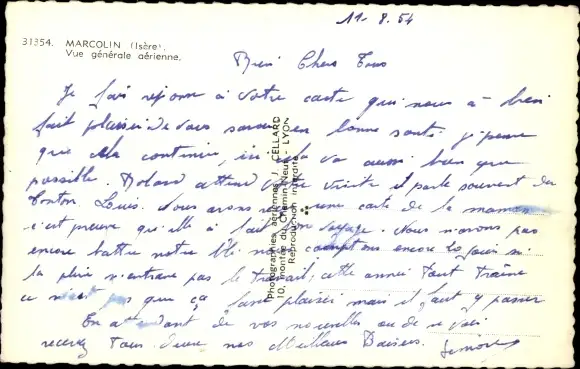 11-8.54
31354. MARCOLIN (Isère).
Vue générale aérienne.
Bien Chers Tous
Je fais réponse à votre carte qui nous à bien
fait plaisir de vous savoir en bonne santé. j'pense
que cela continue, ici cela va aussi bien que
possible. Roland attend votre visite il parle souvent du
tonton Louis. Nous avons une carte de la maman
c'est preuve qu'elle à fait bon voyage. Nous n'avons pas
encore battre notre blé nous comptons encore 10 jours si
la pluie n'entrave pas le travail, cette année tout traine
ce n'est pas que ça fasse plaisir mais il faut y passer
En attendant de vos nouvelles ou de se voir
recevez Tous deux nos Meilleurs Baisers. Simone
Photographies aériennes J. CELLARD
10, montée du Chemin-Neuf - LYON
Reproduction interdite